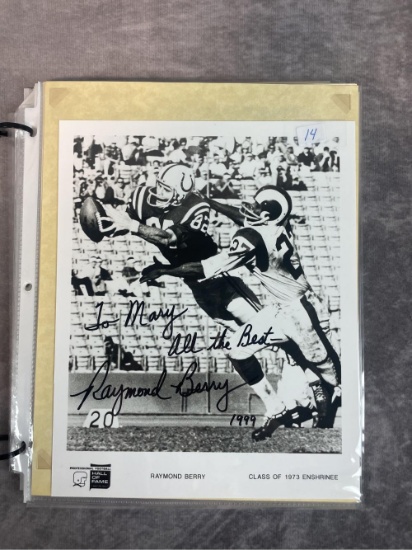 14
82
27
To Mary
All the Best
Raymond Berry
1999
20
HALL OF FAME
RAYMOND BERRY CLASS OF 1973 ENSHRINEE